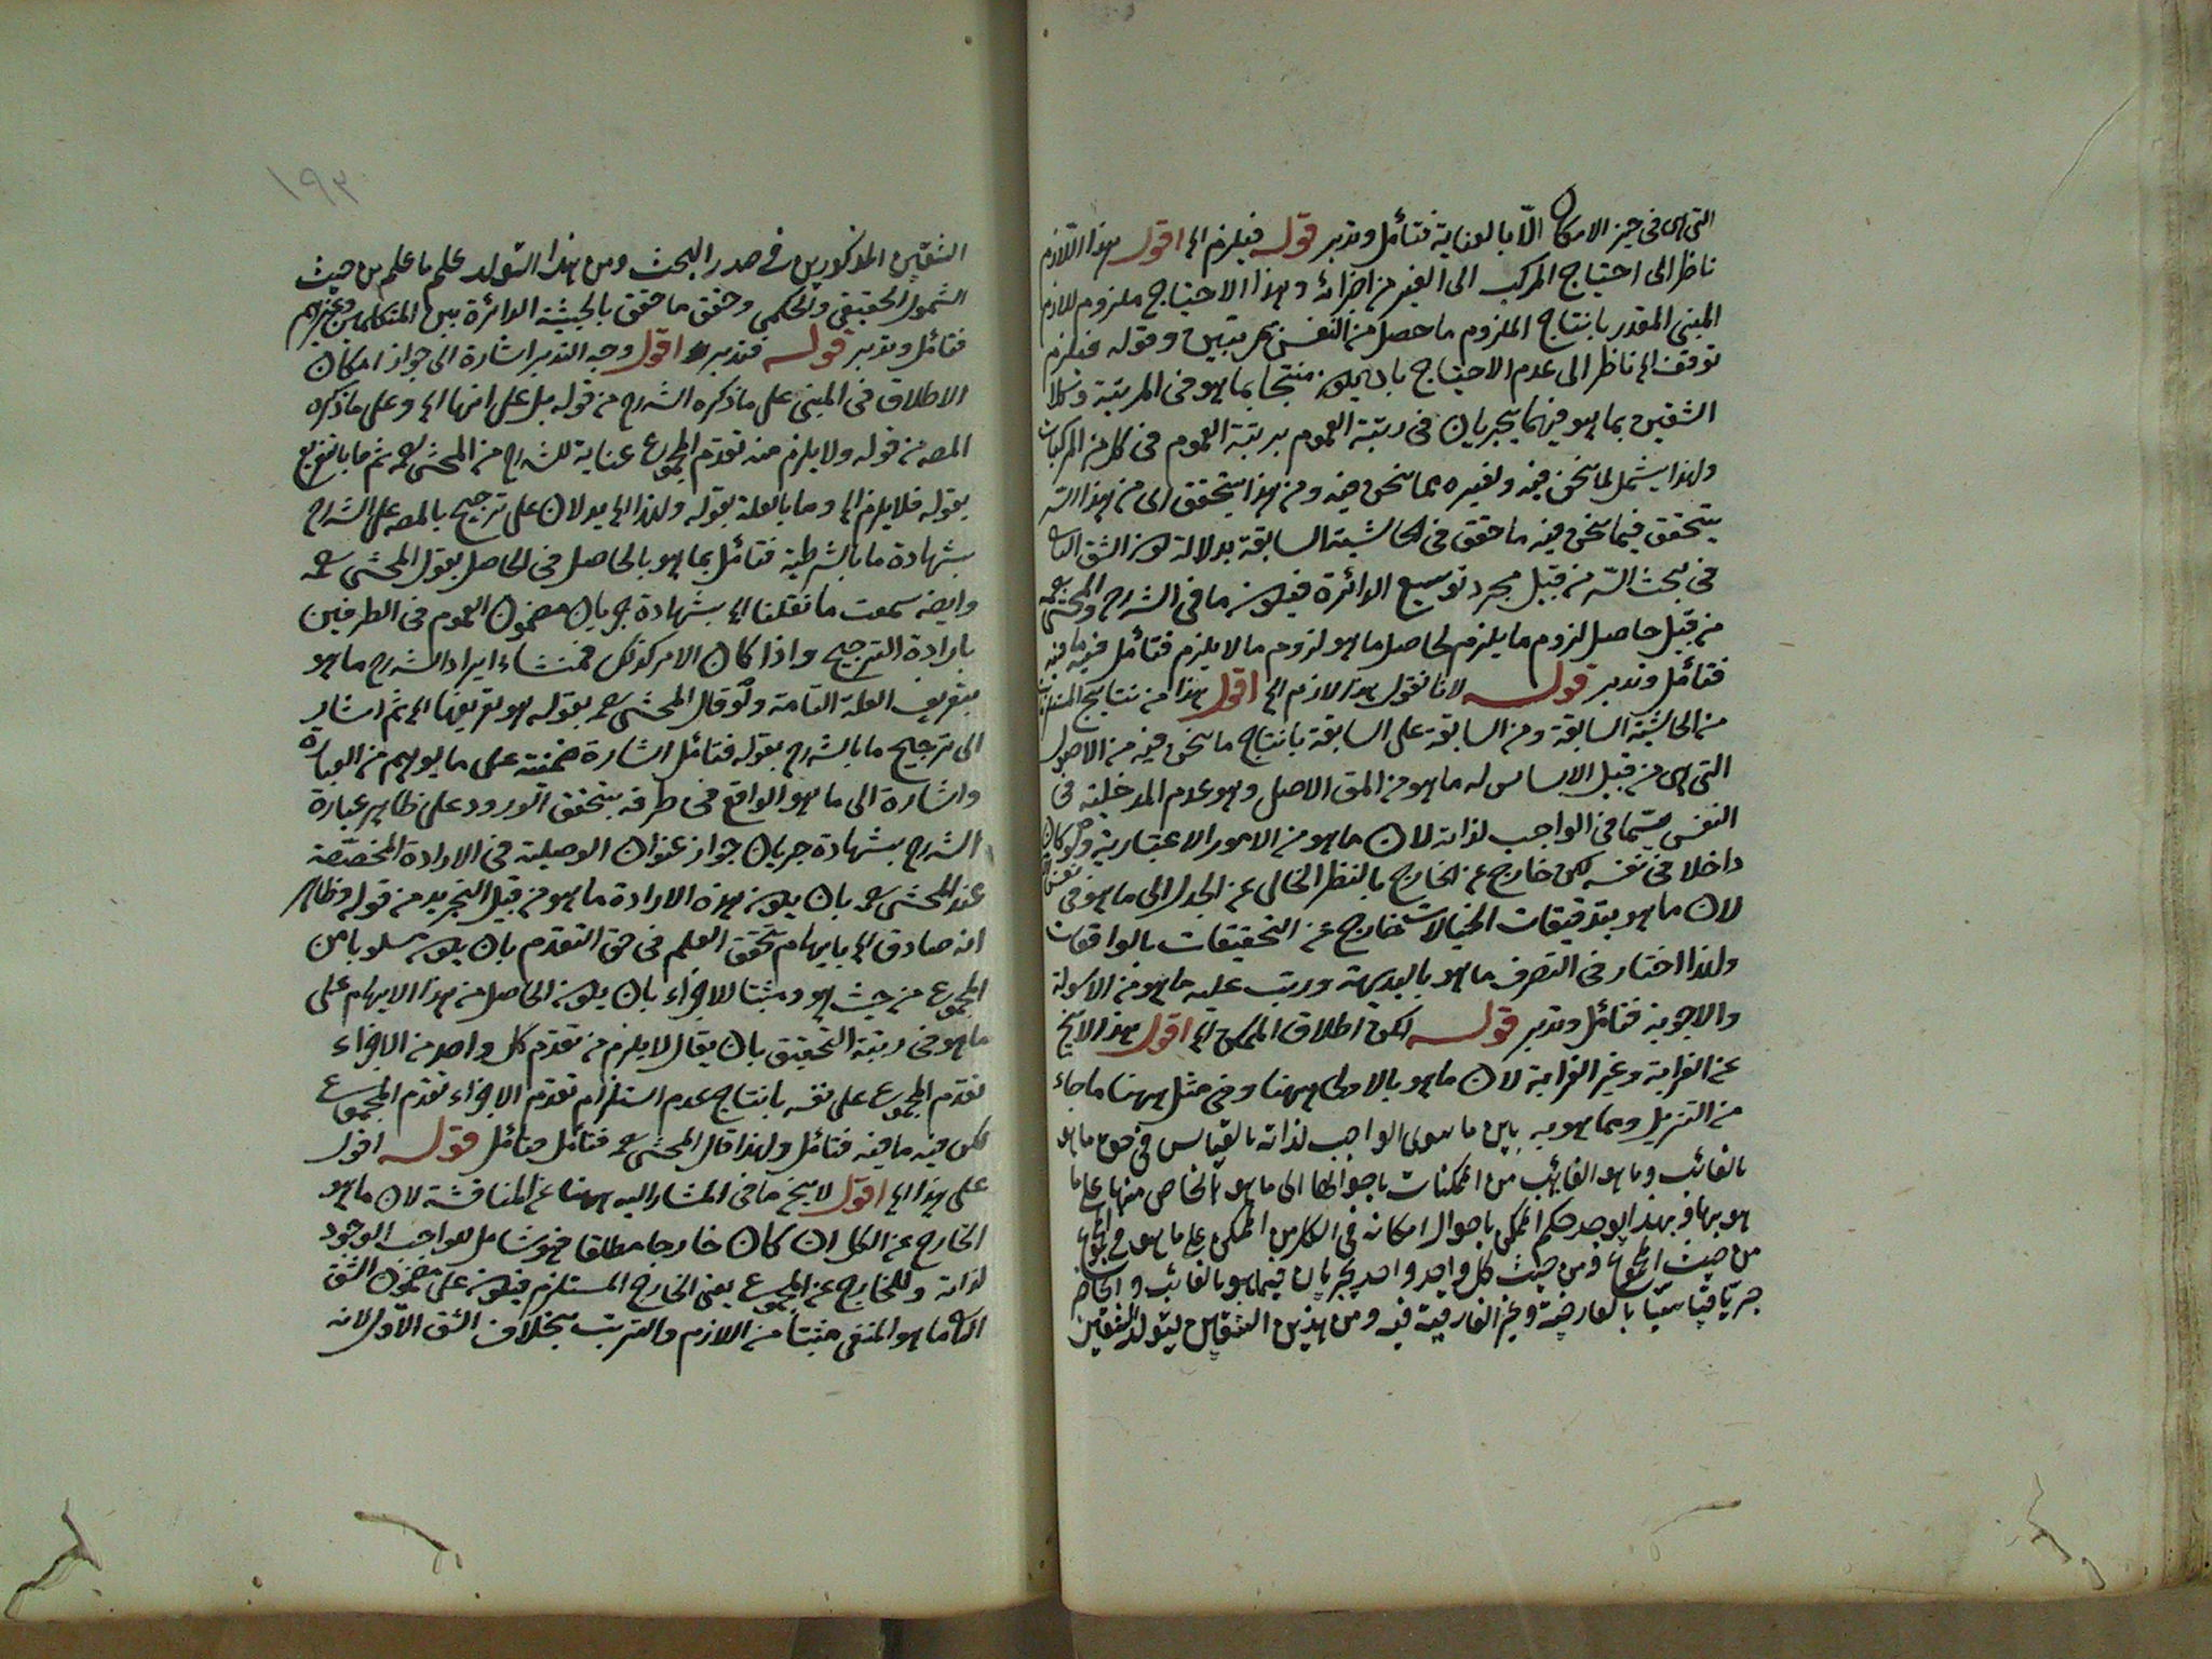 التى هى فى حيز الامكان الا بالعناية فتأمل وتدبر قوله فيلزم الخ اقول هذا اللازم
ناظر الى احتياج المركب الى الغير من اجزائه وهذا الاحتياج ملزوم للازم
المبنى المقدر بانتاج الملزوم ما حصل من النفس بمرتبتين وقوله فيلزم
توقف الخ ناظر الى عدم الاحتياج بان يكون منتجا بما هو فى المرتبة وكلا
الشقين بما هو فيهما يجريان فى رتبة العموم برتبة العموم فى كل من المركبات
ولهذا يشمل لما نحن فيه ولغيره مما نحن فيه ومن هذا يتحقق الى من هذا
يتحقق فيما نحن فيه ما حقق فى الحاشية السابقة بدلالة كون الشق
فى بحث من قبيل مجرد توسيع الدائرة فيكون ما فى الشرح والمحشى
من قبيل حاصل لزوم ما يلزم لحاصل ما هو لزوم ما لا يلزم فتأمل ففيه ما فيه
فتأمل وتدبر قوله لانا نقول هذا لازم الخ اقول هذا من نتايج
من الحاشية السابقة ومن السابقة على السابقة بانتاج ما نحن فيه من الاصول
التى هى من قبيل الاساس له ما هو من المق الاصل وهو عدم المدخلية فى
النفس سيما فى الواجب لذاته لان ما هو من الامور الاعتبارية ولو كان
داخلا فى نفسه لكن خارج عن الخارج بالنظر الخالى عن الجدل الى ما هو فى نفس
لان ما هو بتدقيقات الخيالات خارج عن التحقيقات بالواقعات
ولهذا اختار فى التصرف ما هو بالبديهة ورتب عليه ما هو من الاسولة
والاجوبة فتأمل وتدبر قوله لكن اطلاق الممكن الخ اقول هذا لا يخ
عن الغرابة وغير الغرابة لان ما هو بالاولى ههنا وفى مثل ههنا ما جاء
من التنزيل ومما هو به بين ما سوى الواجب لذاته بالقياس فى حق ما هو
بالغائب وما هو الغائب من الممكنات باحوالها الى ما هو الخاص منها على ما
هو بها وبهذا يوجد حكم الممكن باحوال امكانه فى الكل من الممكن على ما هو فى المجموع
من حيث المجموع ومن حيث كل واحد واحد بجريان فيما هو بالغائب والحاضر
جريا قياسيا بالعارضية وغير الفارقية فيه ومن هذين الشقين يتولد الشقين
١٩٣
الشقين المذكورين فى صدر البحث ومن هذا التولد علم ما علم من حيث
الشمول الحقيقى والحكمى وحقق ما حقق بالحيثية الدائرة بين المتكلمين وغيرهم
فتأمل وتدبر قوله فتدبر اقول وجه التدبر اشارة الى جواز امكان
الاطلاق فى المبنى على ما ذكره الشرح من قوله بل على انها الخ وعلى ما ذكره
المص من قوله ولا يلزم منه تقدم المجموع عناية للشرح من المحشى رح ثم ما بالتفريع
بقوله فلا يلزم الخ وما بالعلة بقوله ولهذا الخ يدلان على ترجيح بالمص على الشرح
بشهادة ما بالشرطية فتأمل بما هو بالحاصل فى الحاصل بقول المحشى رح
وايضه سمعت ما نقلنا الخ بشهادة جريان مضمون العموم فى الطرفين
بارادة الترجيح واذا كان الامر كذلك فمنشاء ايراد الشرح ما هو
بتعريف العلة التامة ولو قال المحشى رح بقوله هو تعريفها الخ ثم اشار
الى ترجيح ما بالشرح بقوله فتأمل اشارة ضمنية على ما يوهم من العبارة
واشارة الى ما هو الواقع فى طرفه بتحقق الورود على ظاهر عبارة
الشرح بشهادة جريان جواز عنوان الوصلية فى الارادة المخصصة
عند المحشى رح بان يكون هذه الارادة ما هو من قبيل التجريد من قوله وظاهر
انه صادق الخ بايهام تحقق العلم فى حق التقدم بان يكون مسلوبا من
المجموع من حيث هو ومثبتا للاجزاء بان يكون الحاصل من هذا الايهام على
ما هو فى رتبة التحقيق بان يقال لا يلزم من تقدم كل واحد من الاجزاء
تقدم المجموع على نفسه بانتاج عدم استلزام تقدم الاجزاء تقدم المجموع
لكن فيه ما فيه فتأمل ولهذا قال المحشى رح فتأمل فتأمل قوله اقول
على هذا الخ اقول لا يخ ما فى المشار اليه ههنا عن المناقشة لان ما هو
الخارج عن الكل ان كان خارجا مطلقا فهو شامل للواجب الوجود
لذاته وللخارج عن المجموع يعنى الخارج المستلزم فيكون على مضمون الشق
ما هو المنفى مثبتا من اللازم والترتب بخلاف الشق الاول لانه